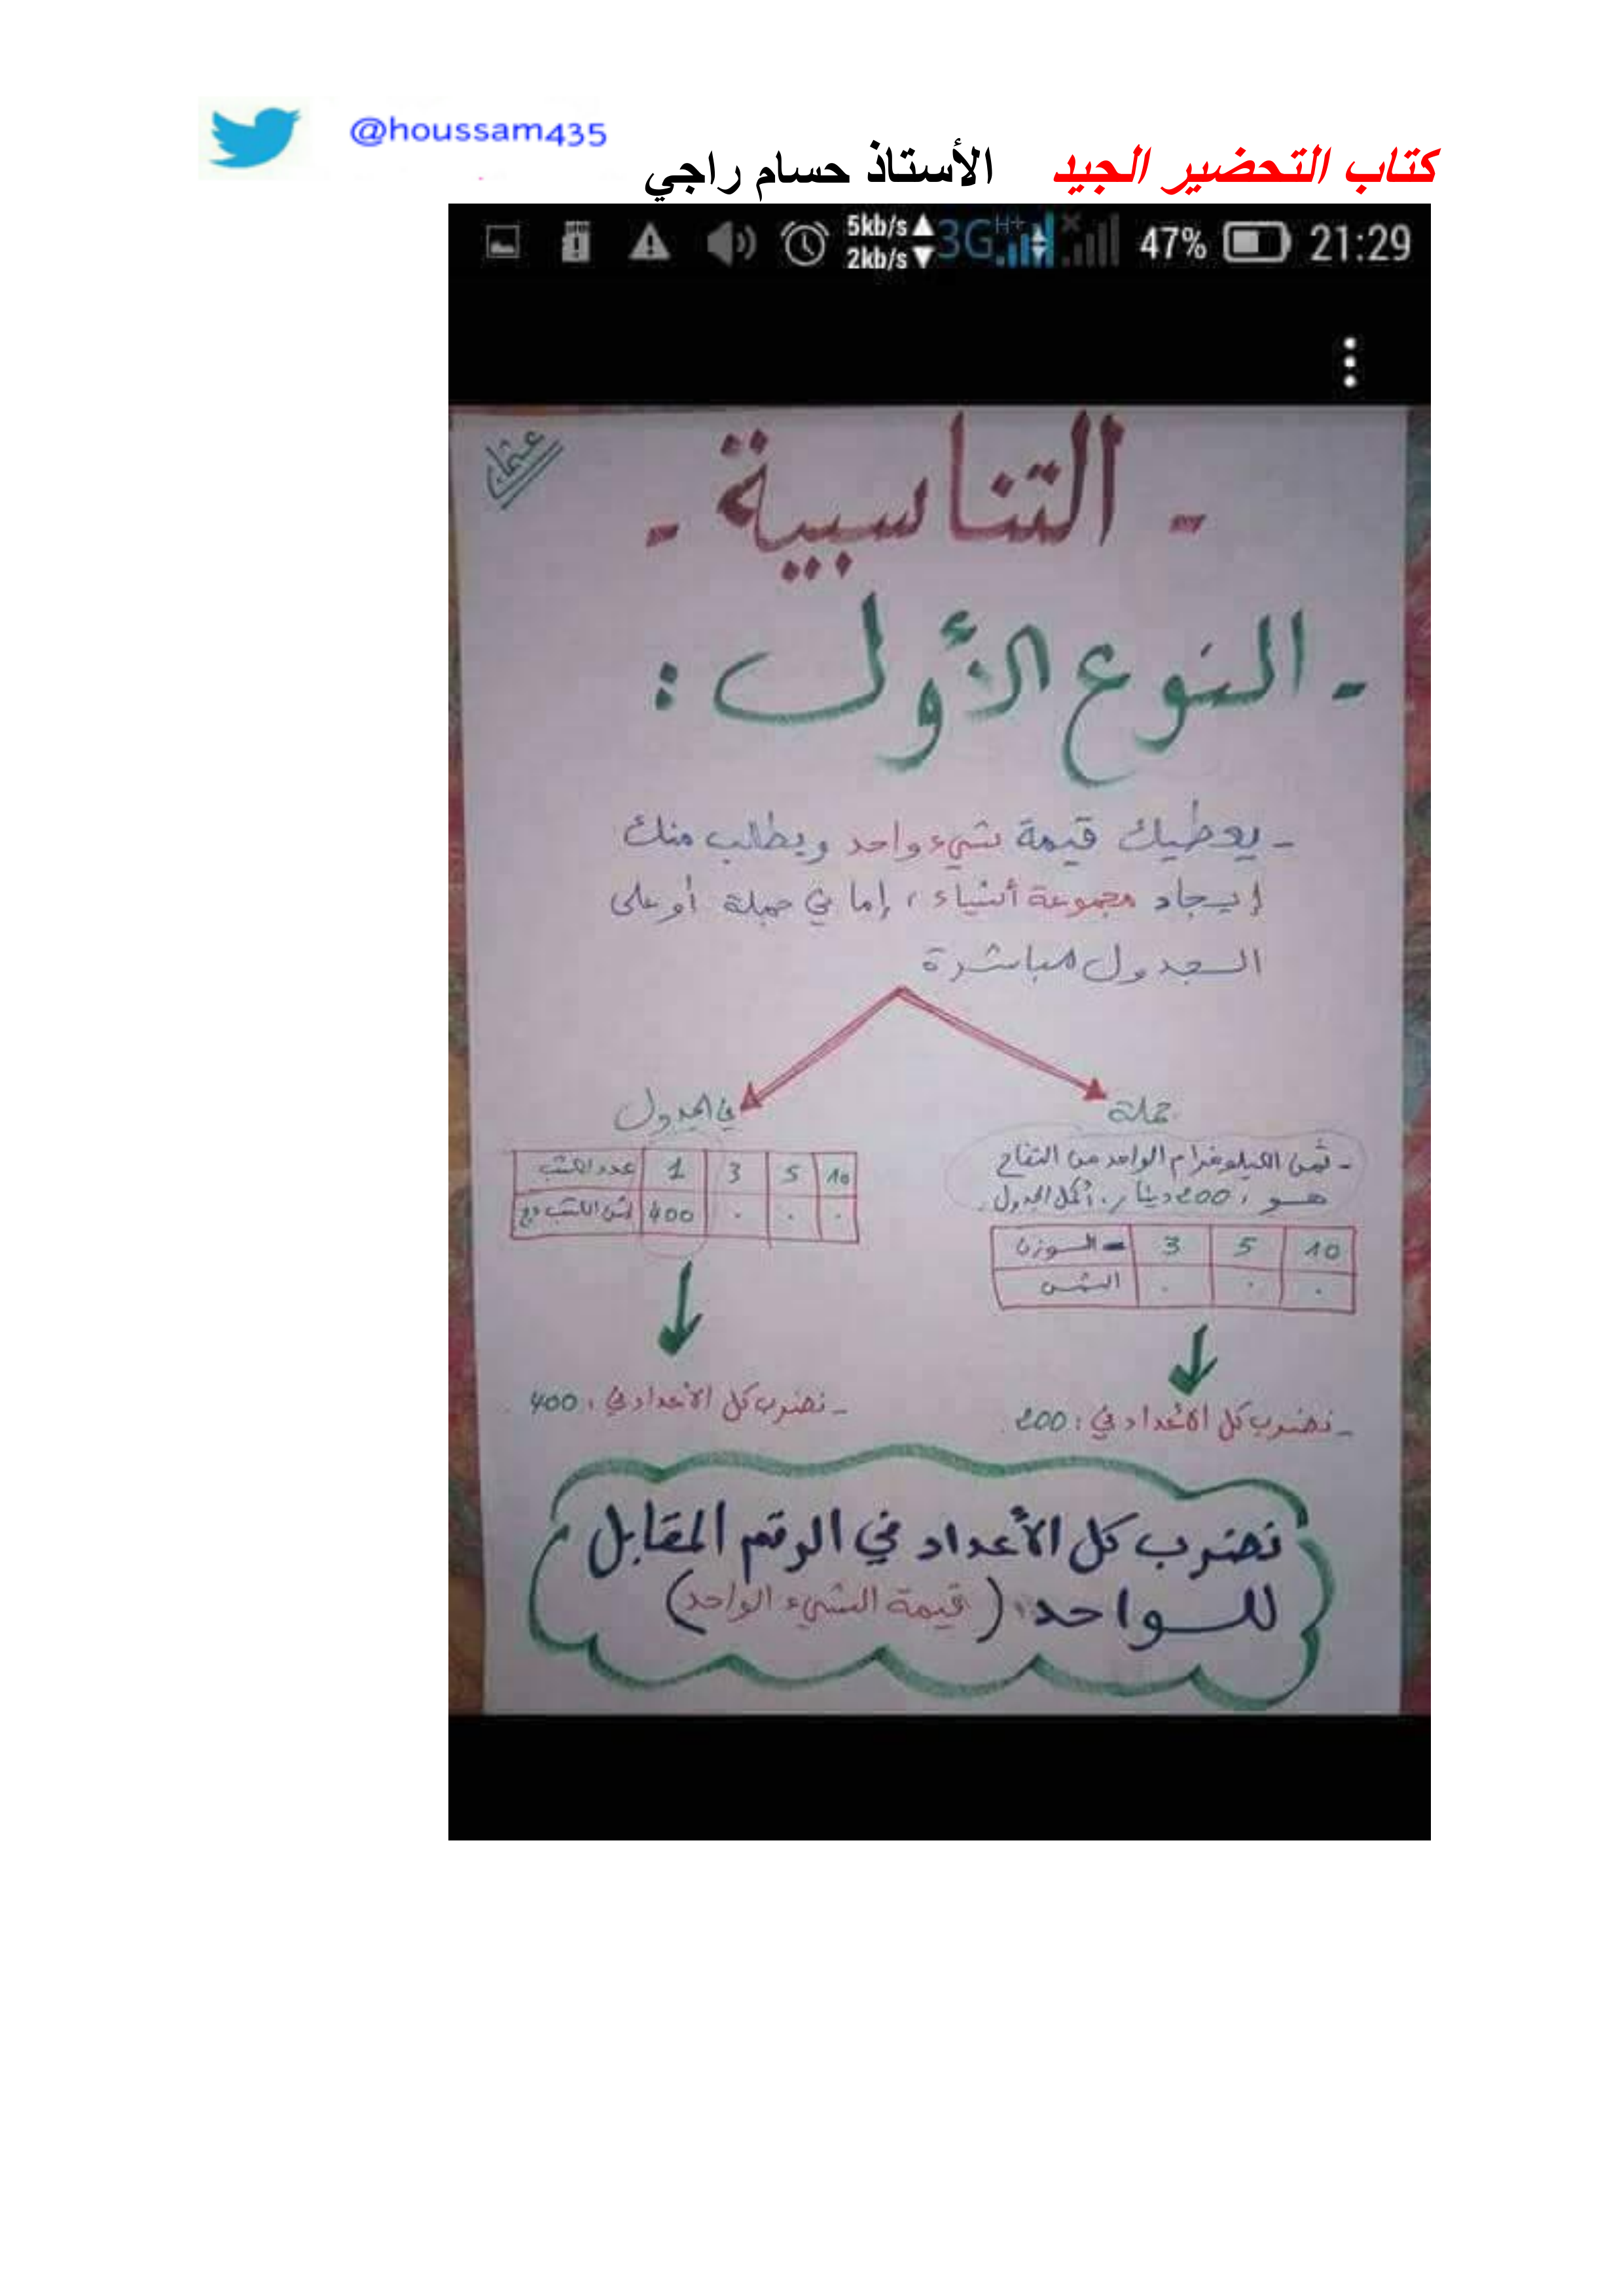 @houssam435
كتاب التحضير الجيد الأستاذ حسام راجي
5kb/s
2kb/s
3G H+ 47% 21:29
عثمان
- التناسبية -
- النوع الأول :
- يعطيك قيمة شيء واحد ويطلب منك
إيجاد مجموعة أشياء، إما في جملة أو على
الجدول مباشرة
جملة
- ثمن الكيلوغرام الواحد من التفاح
هو : 200 دينار. أكمل الجدول.
الوزن 3 5 10
الثمن . . .
- نضرب كل الأعداد في : 200
في الجدول
عدد الكتب 1 3 5 10
ثمن الكتب دج 400 . . .
- نضرب كل الأعداد في : 400
نضرب كل الأعداد في الرقم المقابل
للواحد (قيمة الشيء الواحد)